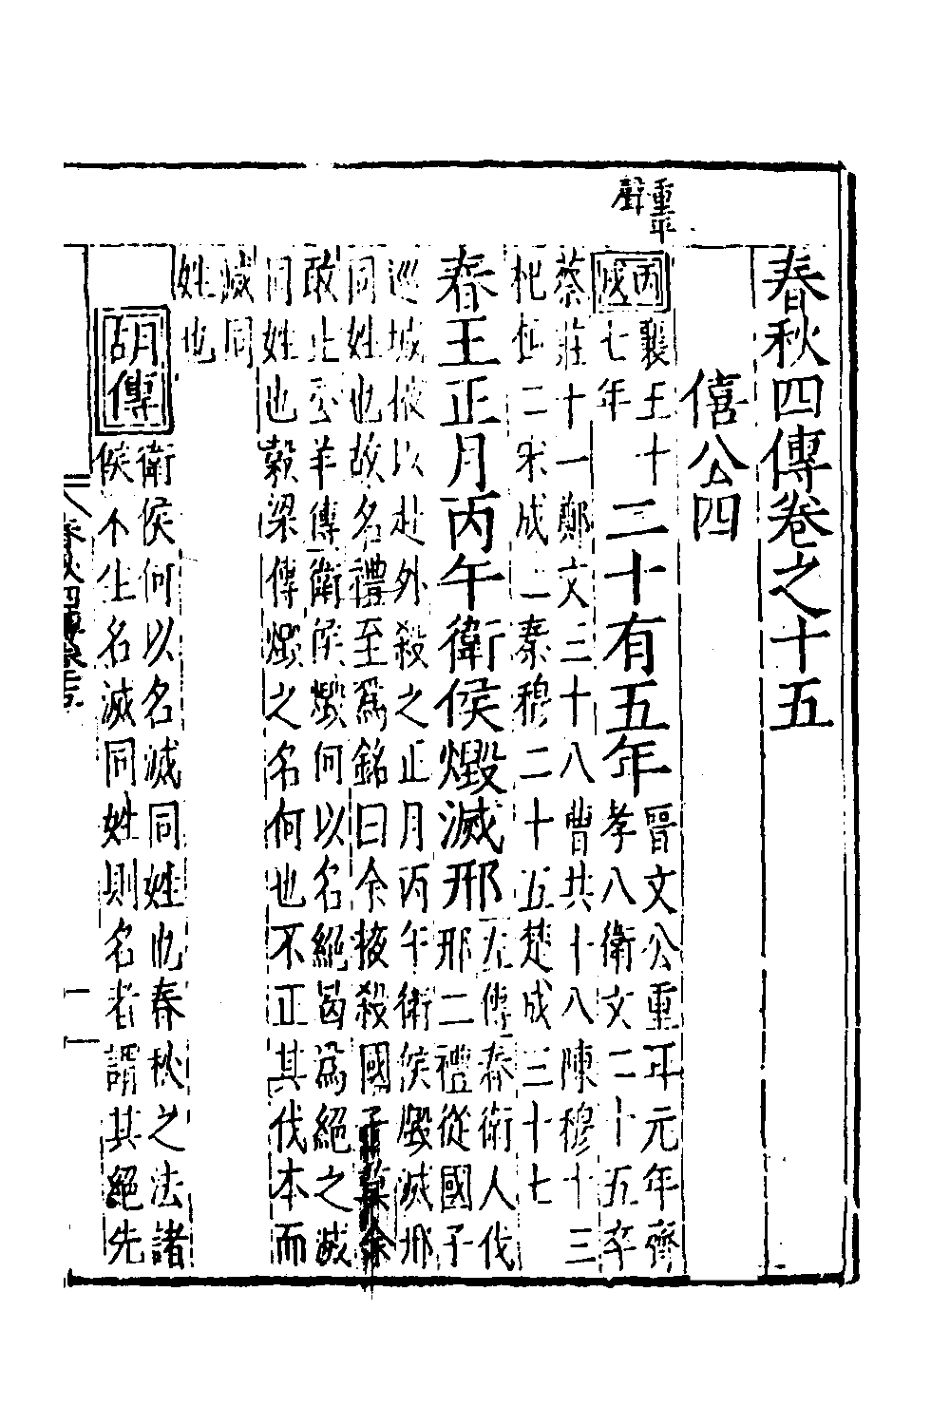 春秋四傳卷之十五
僖公四
重耳
聲
丙戌
襄王十
七年
二十有五年
晉文公重耳元年齊
孝八衛文二十五卒
蔡莊十一鄭文三十八曹共十八陳穆十三
杞桓二宋成二秦穆二十五楚成三十七
春王正月丙午衛侯燬滅邢
左傳春衛人伐
邢二禮從國子
巡城掖以赴外殺之正月丙午衛侯燬滅邢
同姓也故名禮至為銘曰余掖殺國子莫余
敢止公羊傳衛侯燬何以名絕曷為絕之滅
同姓也穀梁傳燬之名何也不正其伐本而
滅同
姓也
胡傳
衛侯何以名滅同姓也春秋之法諸
侯不生名滅同姓則名者謂其絕先
春秋四傳卷十五
一